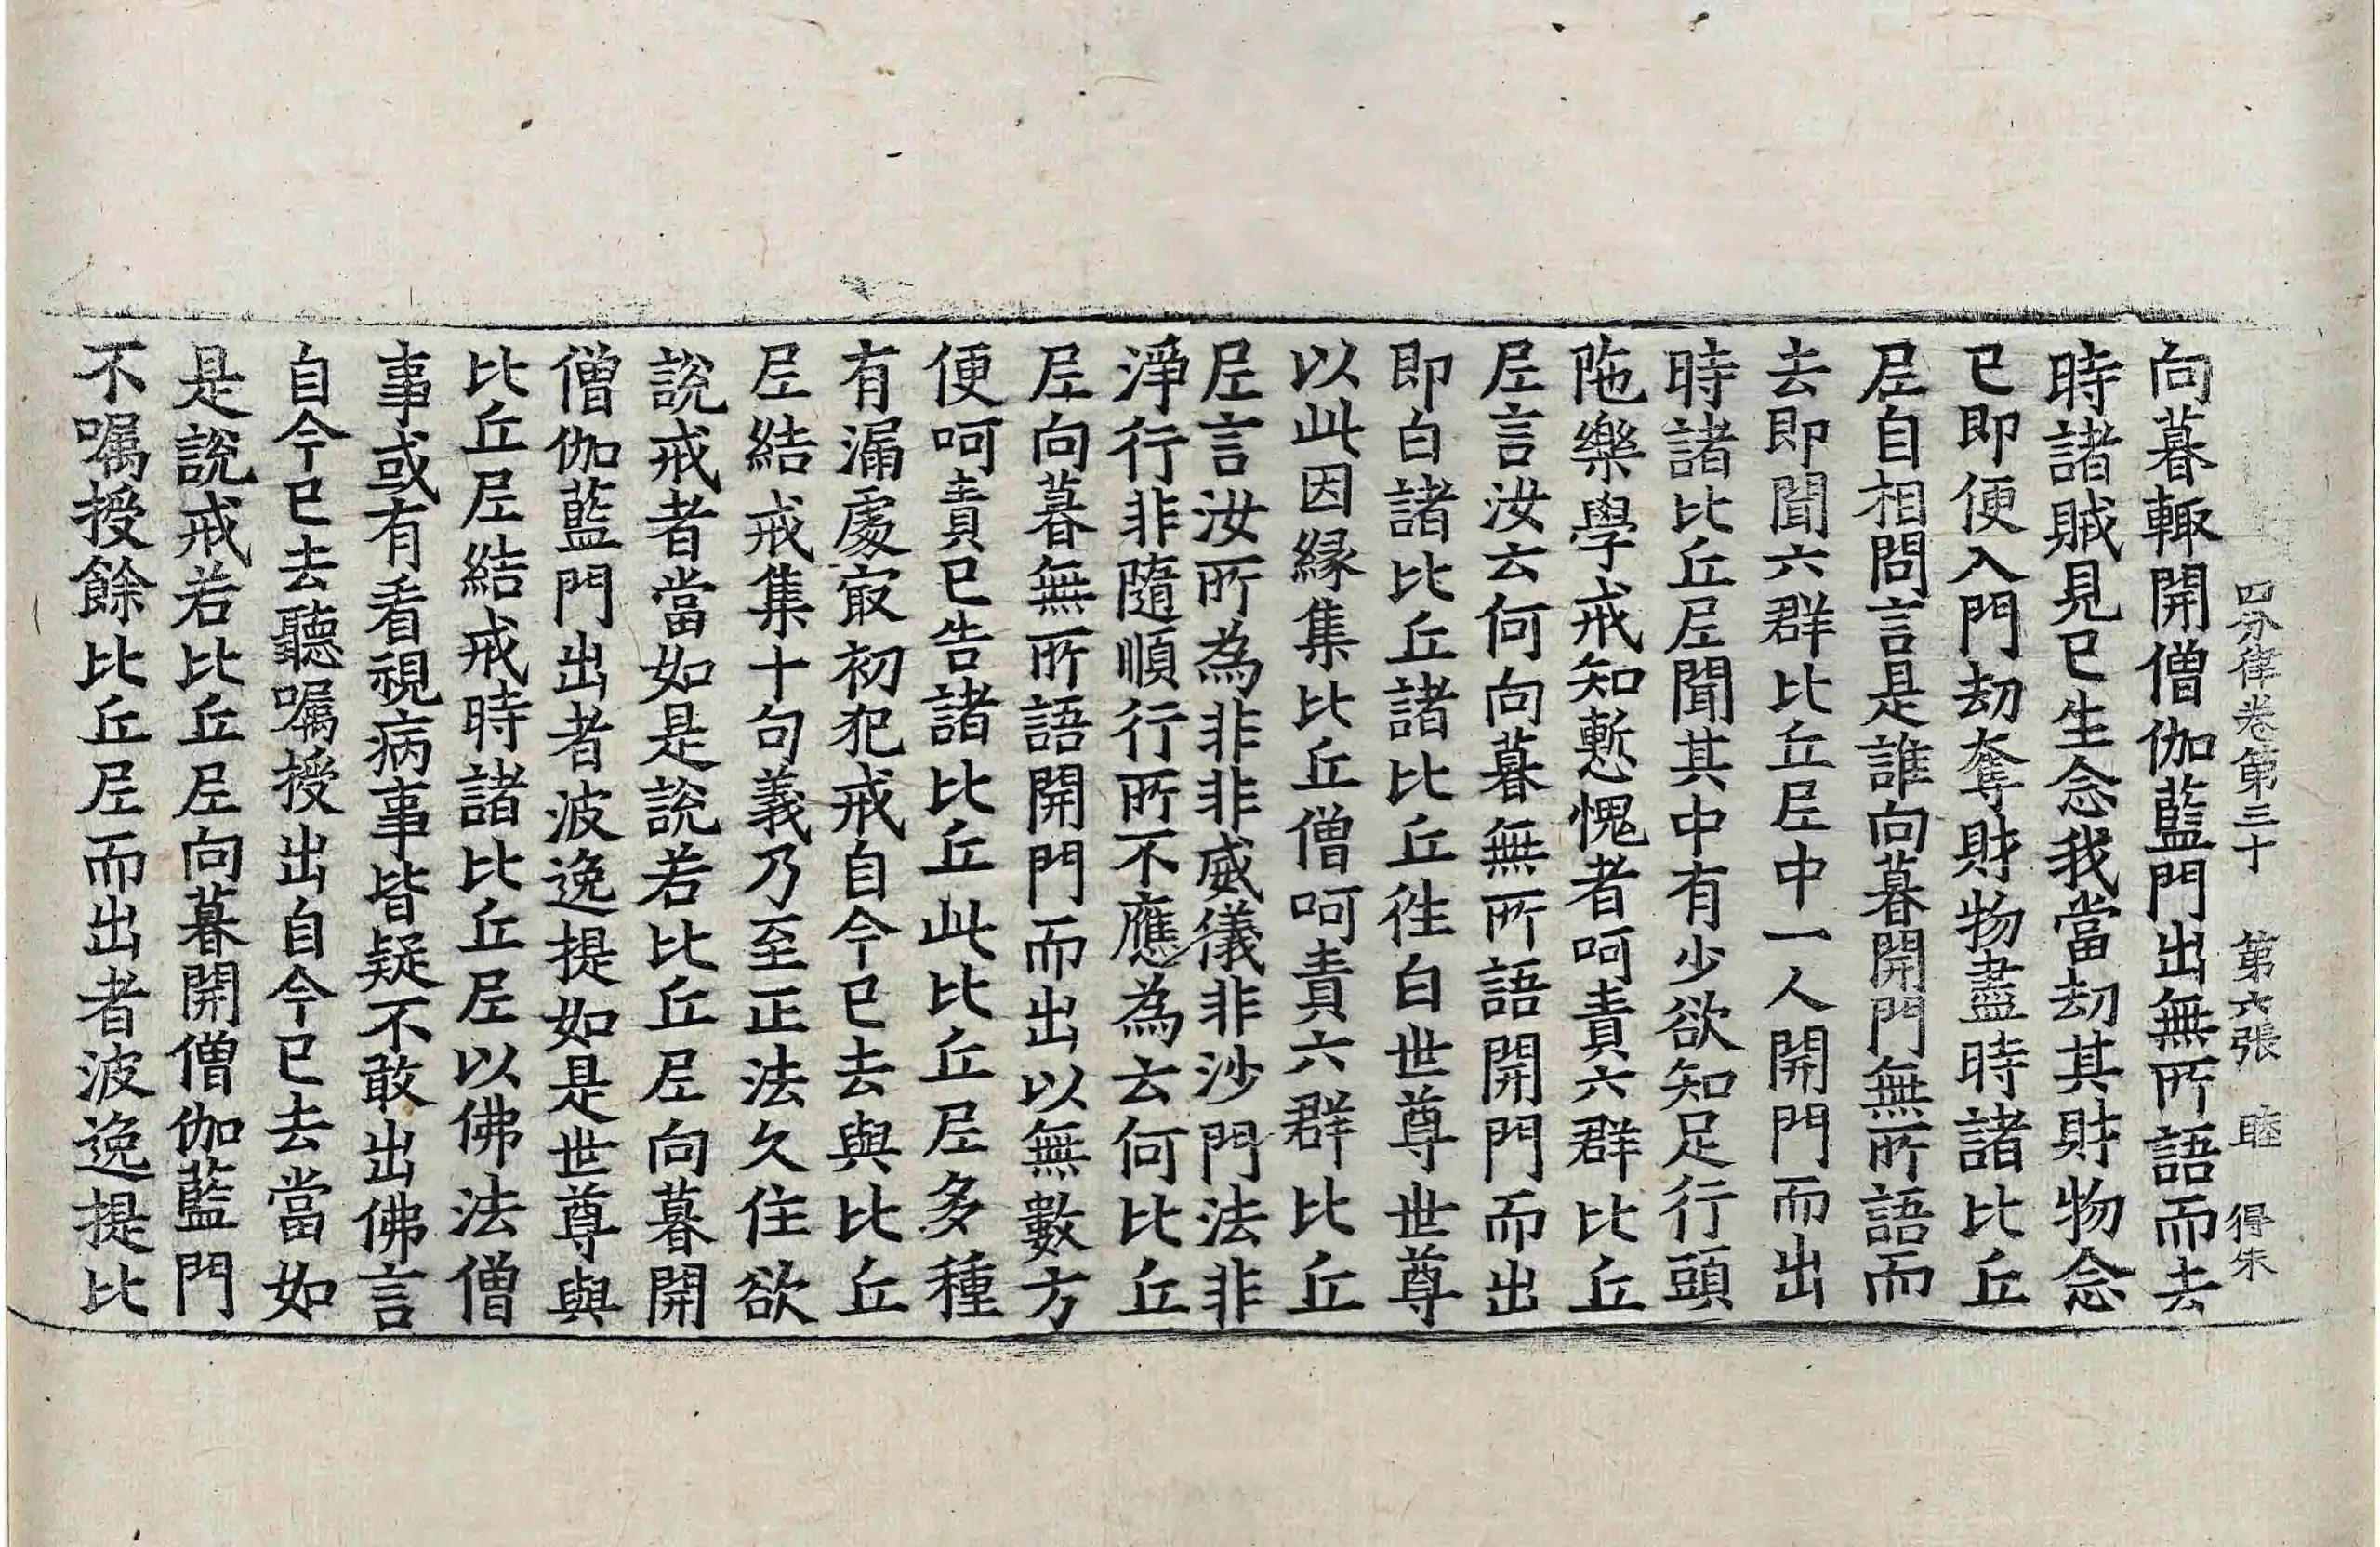 四分律卷第三十　第六張　睦　得朱
向暮輙開僧伽藍門出無所語而去
時諸賊見已生念我當劫其財物念
已即便入門劫奪財物盡時諸比丘
尼自相問言是誰向暮開門無所語而
去即聞六群比丘尼中一人開門而出
時諸比丘尼聞其中有少欲知足行頭
陁樂學戒知慙愧者呵責六群比丘
尼言汝云何向暮無所語開門而出
即白諸比丘諸比丘徃白世尊世尊
以此因緣集比丘僧呵責六群比丘
尼言汝所為非非威儀非沙門法非
淨行非隨順行所不應為云何比丘
尼向暮無所語開門而出以無數方
便呵責已告諸比丘此比丘尼多種
有漏處㝡初犯戒自今已去與比丘
尼結戒集十句義乃至正法久住欲
說戒者當如是說若比丘尼向暮開
僧伽藍門出者波逸提如是世尊與
比丘尼結戒時諸比丘尼以佛法僧
事或有看視病事皆疑不敢出佛言
自今已去聽囑授出自今已去當如
是說戒若比丘尼向暮開僧伽藍門
不囑授餘比丘尼而出者波逸提比